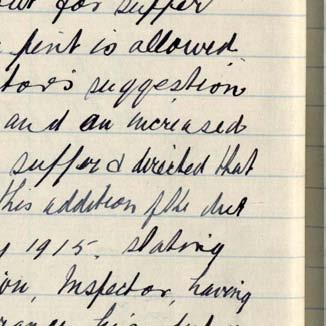 for supper
pint is allowed
tor's suggestion
and an increased
supper & directed that
this addition of the diet
y 1915. stating
ion, Inspector, having
his